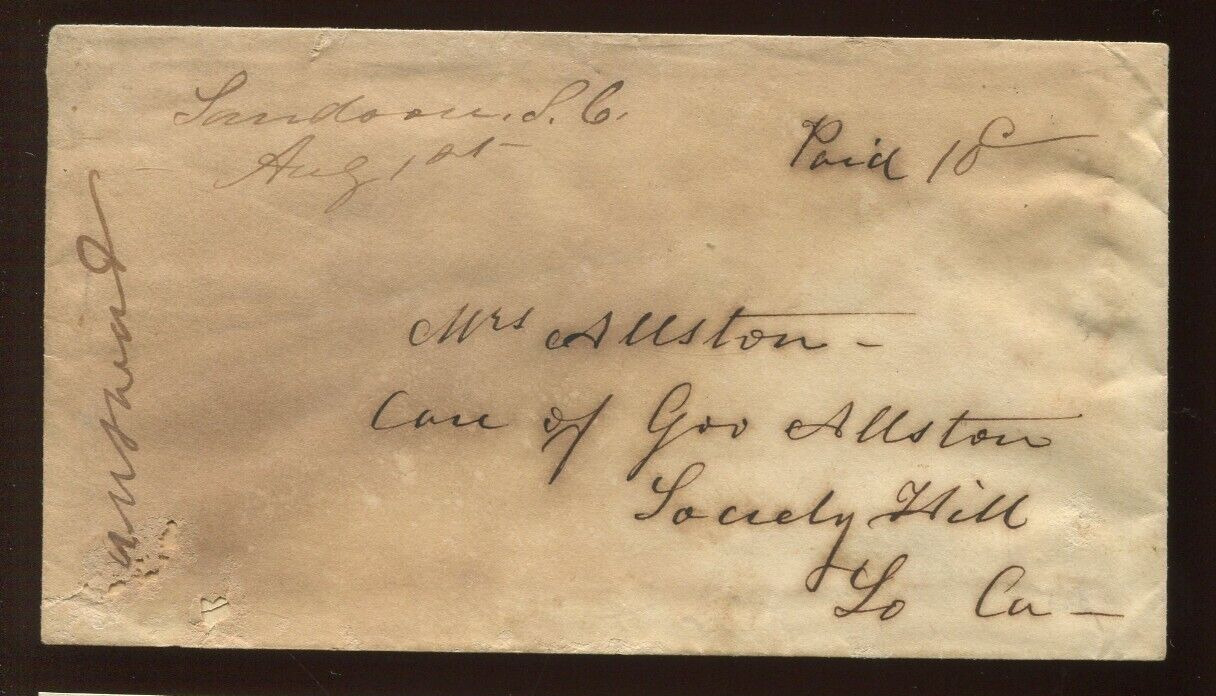 Sandover. S. C.
Aug 1st
Paid 10
answered
Mrs Allston -
Care of Gov Allston
Society Hill
So Ca -